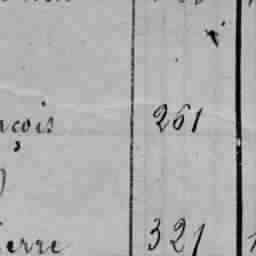 ncois 261
ierre 321